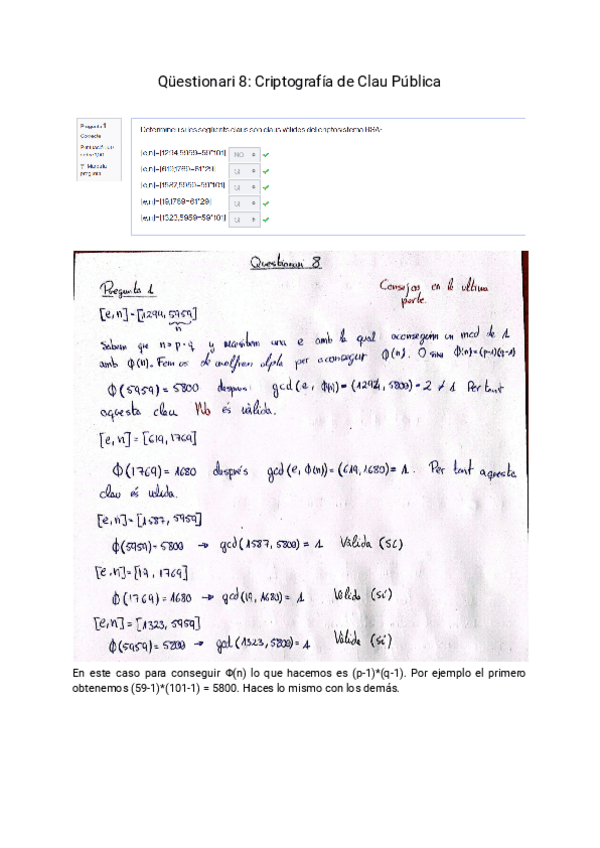 Qüestionari 8: Criptografía de Clau Pública
Pregunta 1
Correcte
Determineu si les següents claus son claus vàlides del criptosistema RSA:
[e,n]=[1294,5959=59*101] NO
[e,n]=[619,1769=61*29]
[e,n]=[1587,5959=59*101]
[e,n]=[19,1769=61*29]
[e,n]=[1323,5959=59*101]
Questionari 8
Pregunta 1
Consejos en la ultima
parte.
[e,n]=[1294, 5959]
n
Sabem que n=p·q y necesitem una e amb la qual aconseguim un mcd de 1
amb Φ(n). Fem ús de wolfram alpha per aconseguir Φ(n). O sino Φ(n)=(p-1)(q-1)
Φ(5959) = 5800 després: gcd(e, Φ(n)) = (1294, 5800) = 2 ≠ 1 Per tant
aquesta clau No és vàlida.
[e,n] = [619, 1769]
Φ(1769) = 1680 després gcd(e, Φ(n)) = (619, 1680) = 1. Per tant aquesta
clau és vàlida.
[e,n] = [1587, 5959]
Φ(5959) = 5800 → gcd(1587, 5800) = 1 Vàlida (Sí)
[e,n]=[19, 1769]
Φ(1769) = 1680 → gcd(19, 1680) = 1 Vàlida (sí)
[e,n] = [1323, 5959]
Φ(5959) = 5800 → gcd(1323, 5800) = 1 Vàlida (sí)
En este caso para conseguir Φ(n) lo que hacemos es (p-1)*(q-1). Por ejemplo el primero
obtenemos (59-1)*(101-1) = 5800. Haces lo mismo con los demás.